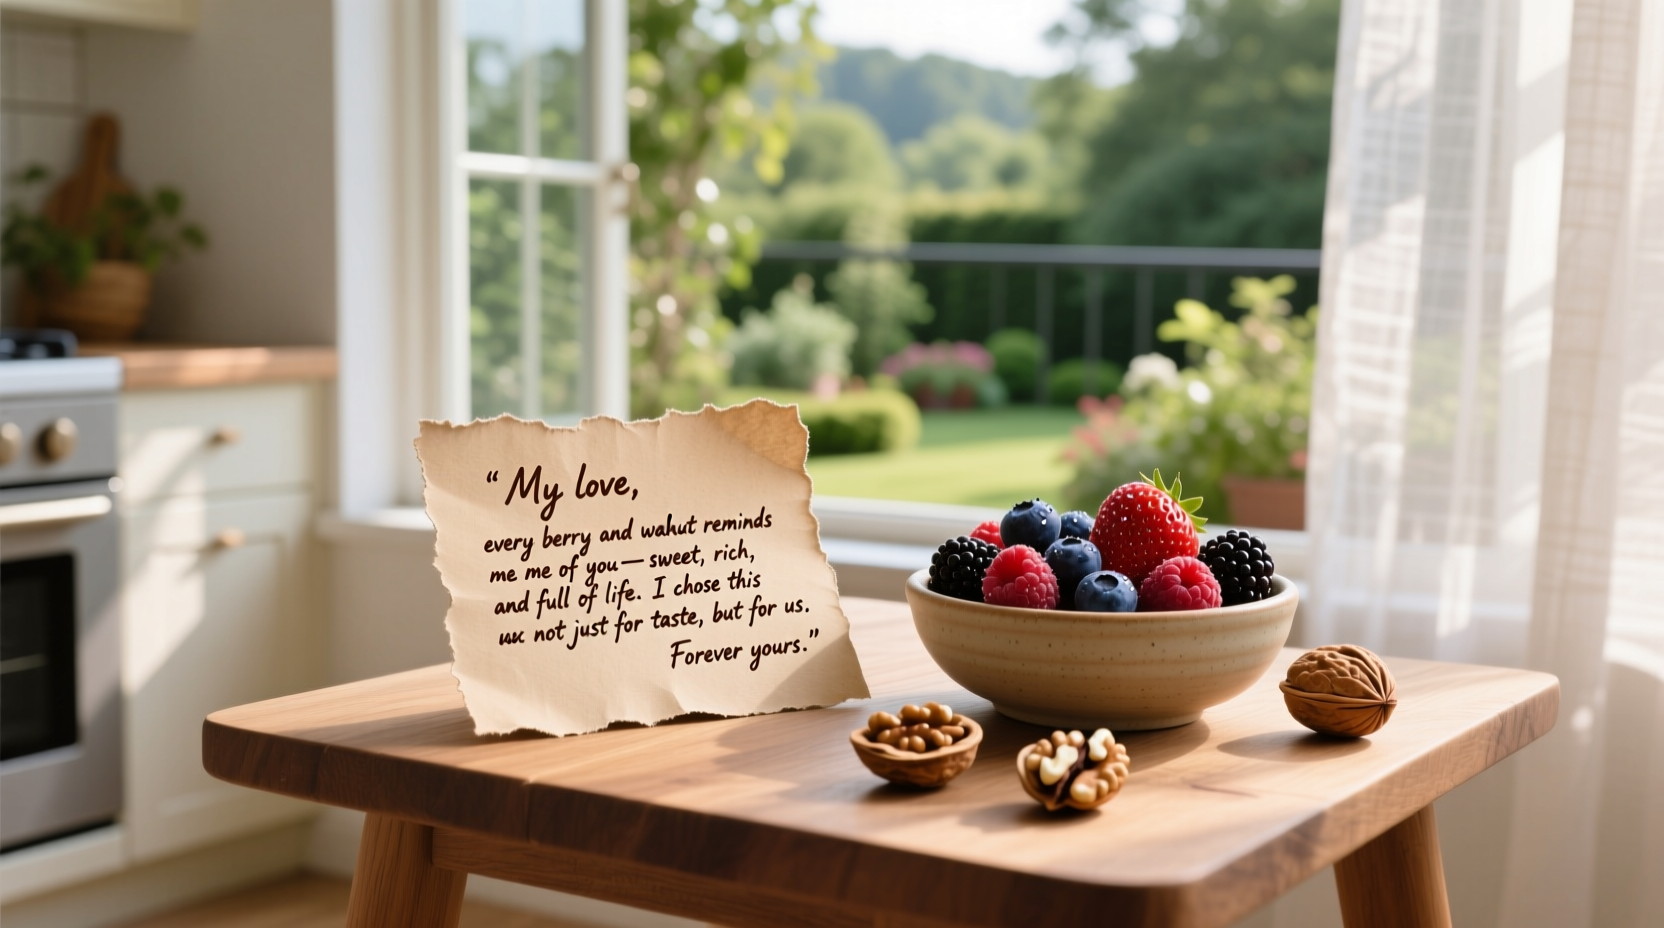 “My love,
every berry and wahut reminds
me me of you — sweet, rich,
and full of life. I chose this
not just for taste, but for us.
Forever yours.”